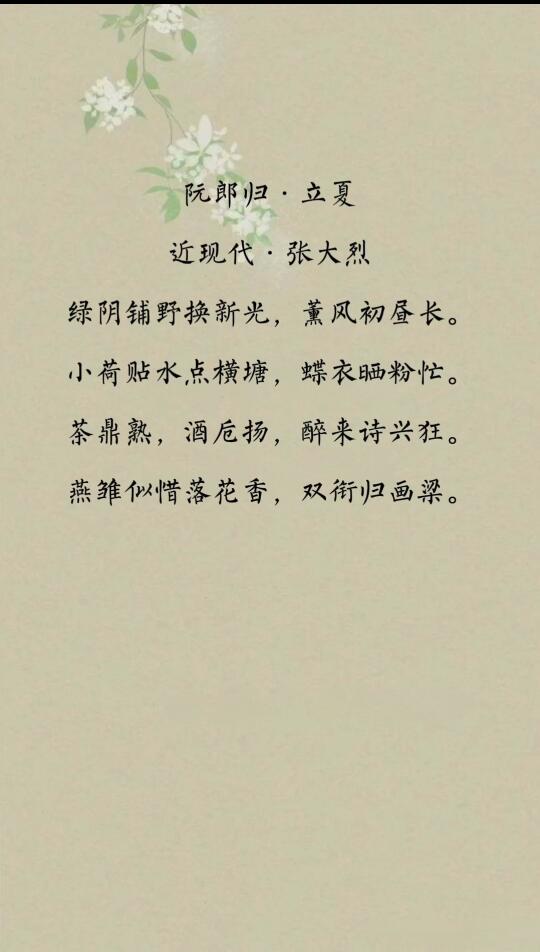 阮郎归·立夏
近现代·张大烈
绿阴铺野换新光，薰风初昼长。
小荷贴水点横塘，蝶衣晒粉忙。
茶鼎熟，酒卮扬，醉来诗兴狂。
燕雏似惜落花香，双衔归画梁。